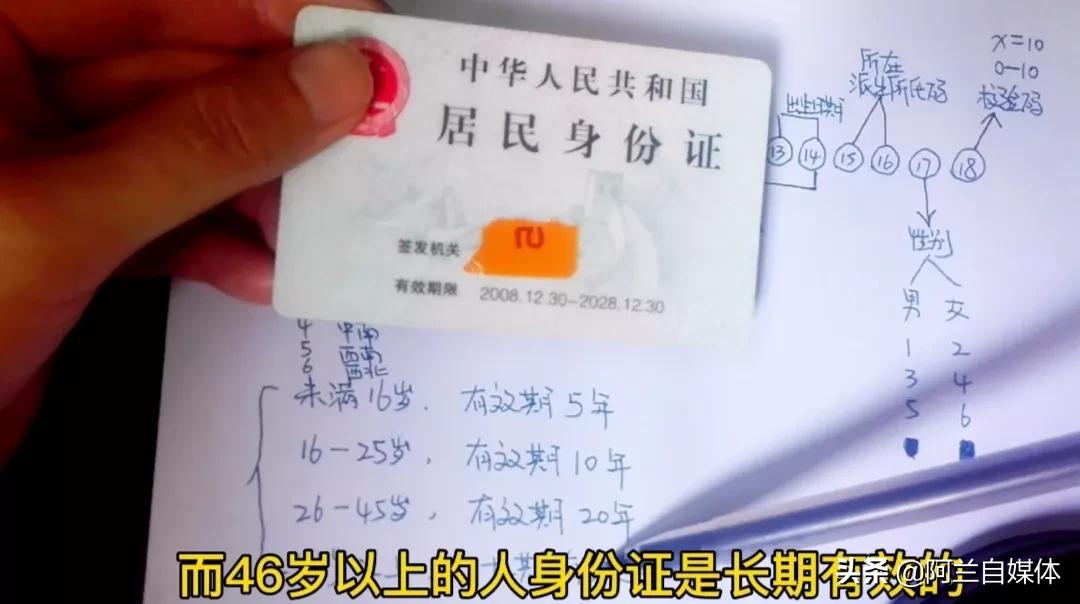 中华人民共和国
居民身份证
签发机关
有效期限 2008.12.30-2028.12.30
x=10
0-10
校验码
所在
派出所代码
出生日期
13 14 15 16 17 18
性别
男 女
1 2
3 4
5 6
4 中南
5 西南
6 西北
未满16岁. 有效期5年
16-25岁, 有效期10年
26-45岁, 有效期20年
而46岁以上的人身份证是长期有效的
头条 @阿兰自媒体